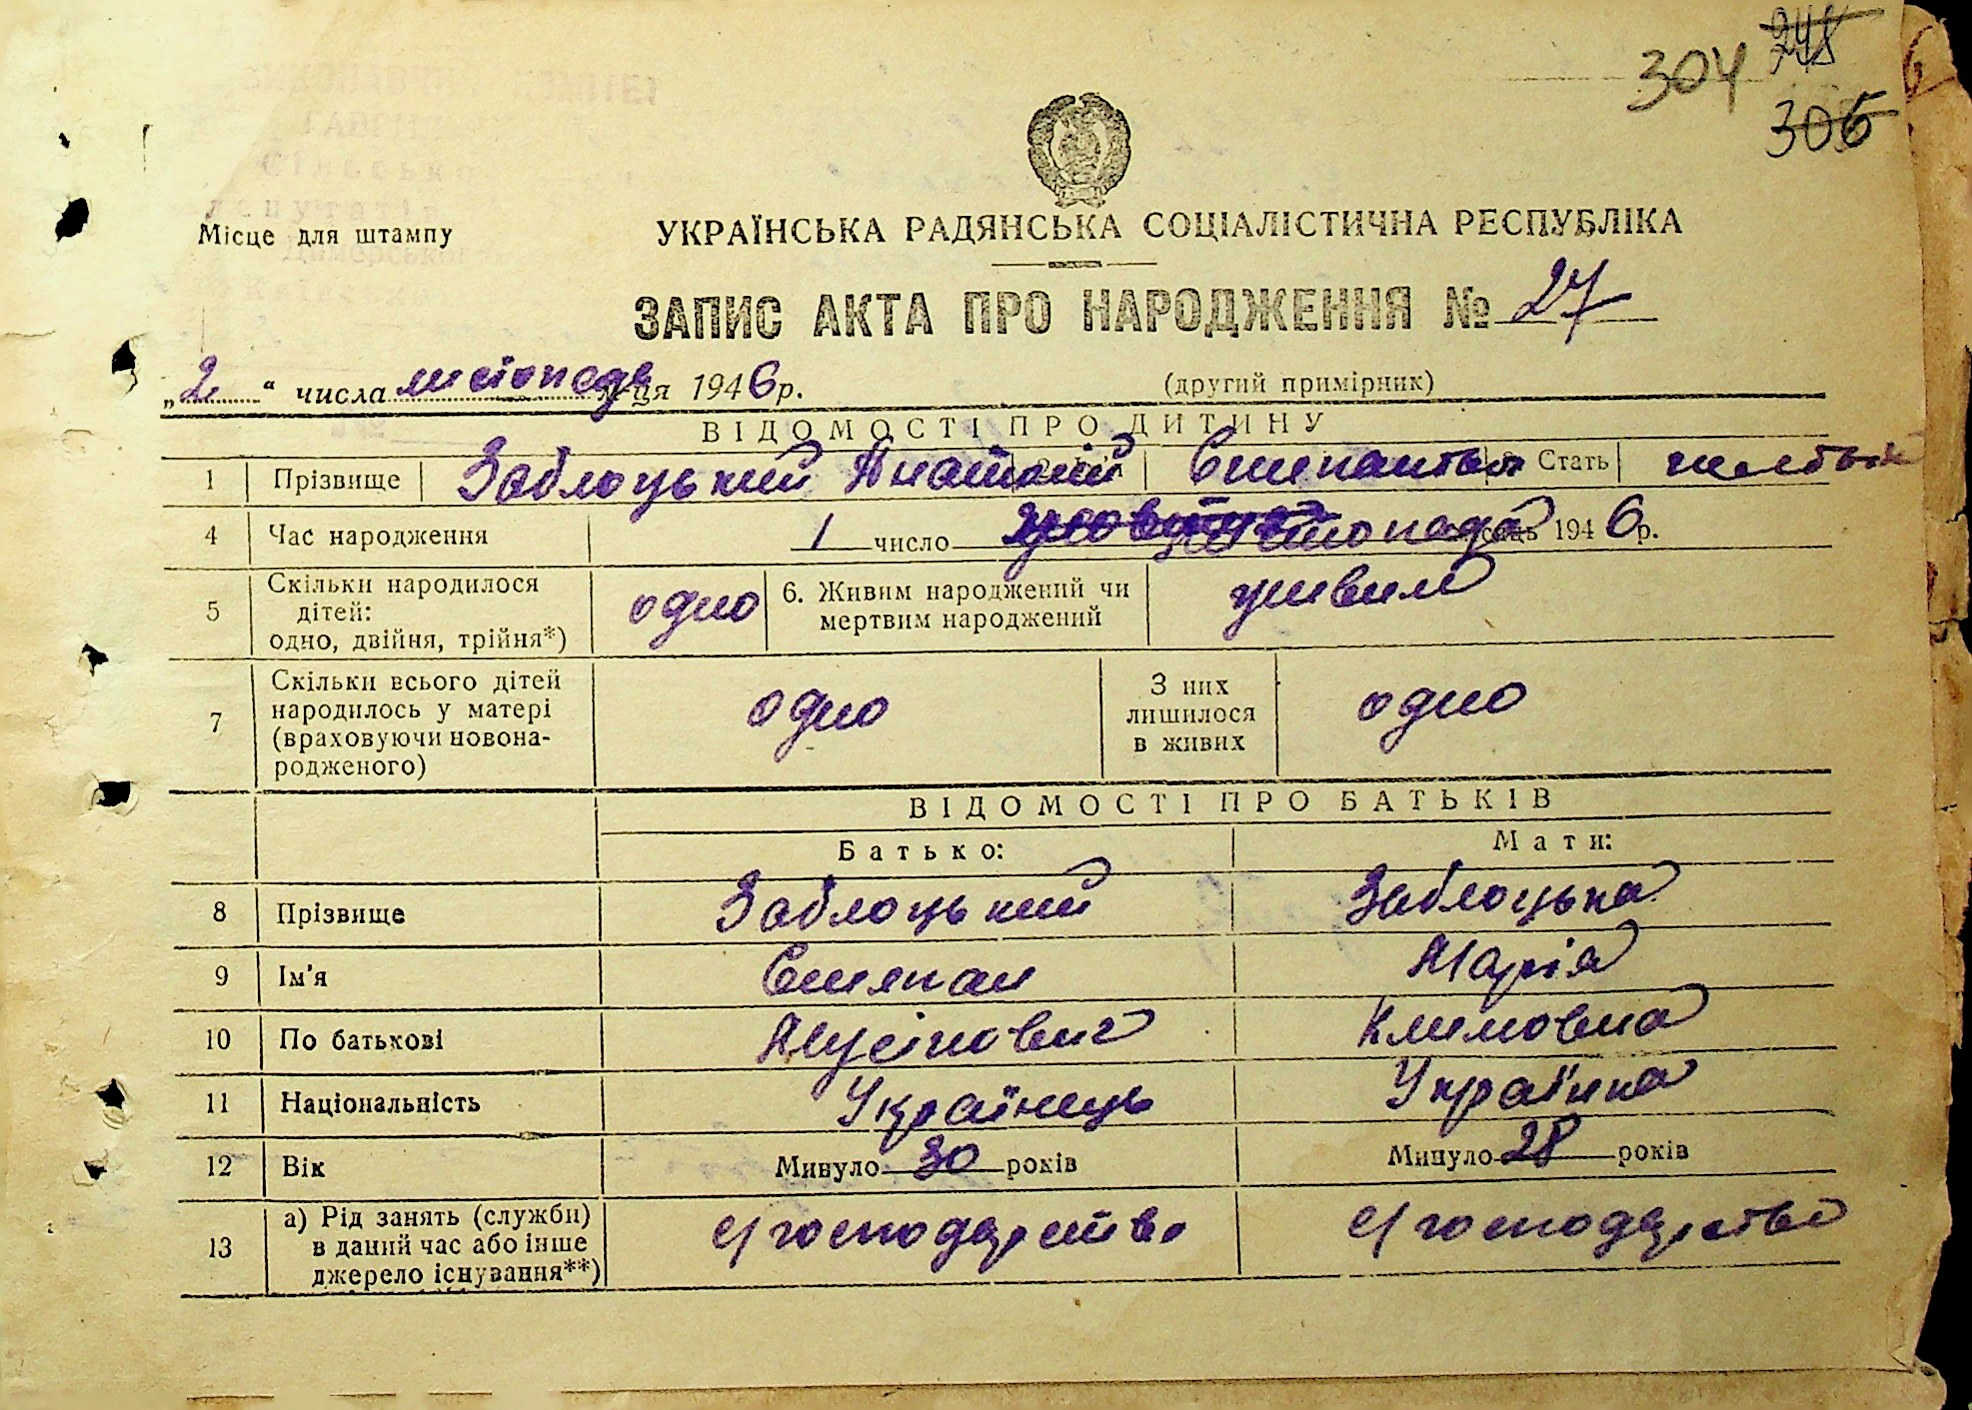 304 245
306
Місце для штампу
УКРАЇНСЬКА РАДЯНСЬКА СОЦІАЛІСТИЧНА РЕСПУБЛІКА
ЗАПИС АКТА ПРО НАРОДЖЕННЯ № 27
„2" числа листопада м-ця 1946 р.
(другий примірник)
ВІДОМОСТІ ПРО ДИТИНУ
1 Прізвище Заблоцький Анатолій Степанович Стать
4 Час народження 1 число листопада місяць 1946 р.
5 Скільки народилося дітей: одно, двійня, трійня*) одно 6. Живим народжений чи мертвим народжений живим
7 Скільки всього дітей народилось у матері (враховуючи новона-родженого) одно З них лишилося в живих одно
ВІДОМОСТІ ПРО БАТЬКІВ
Батько: Мати:
8 Прізвище Заблоцький Заблоцька
9 Ім'я Степан Марія
10 По батькові Мусіпович Климовна
11 Національність Українець Українка
12 Вік Минуло 30 років Минуло 28 років
13 а) Рід занять (служби) в даний час або інше джерело існування**) с/господарство с/господарство